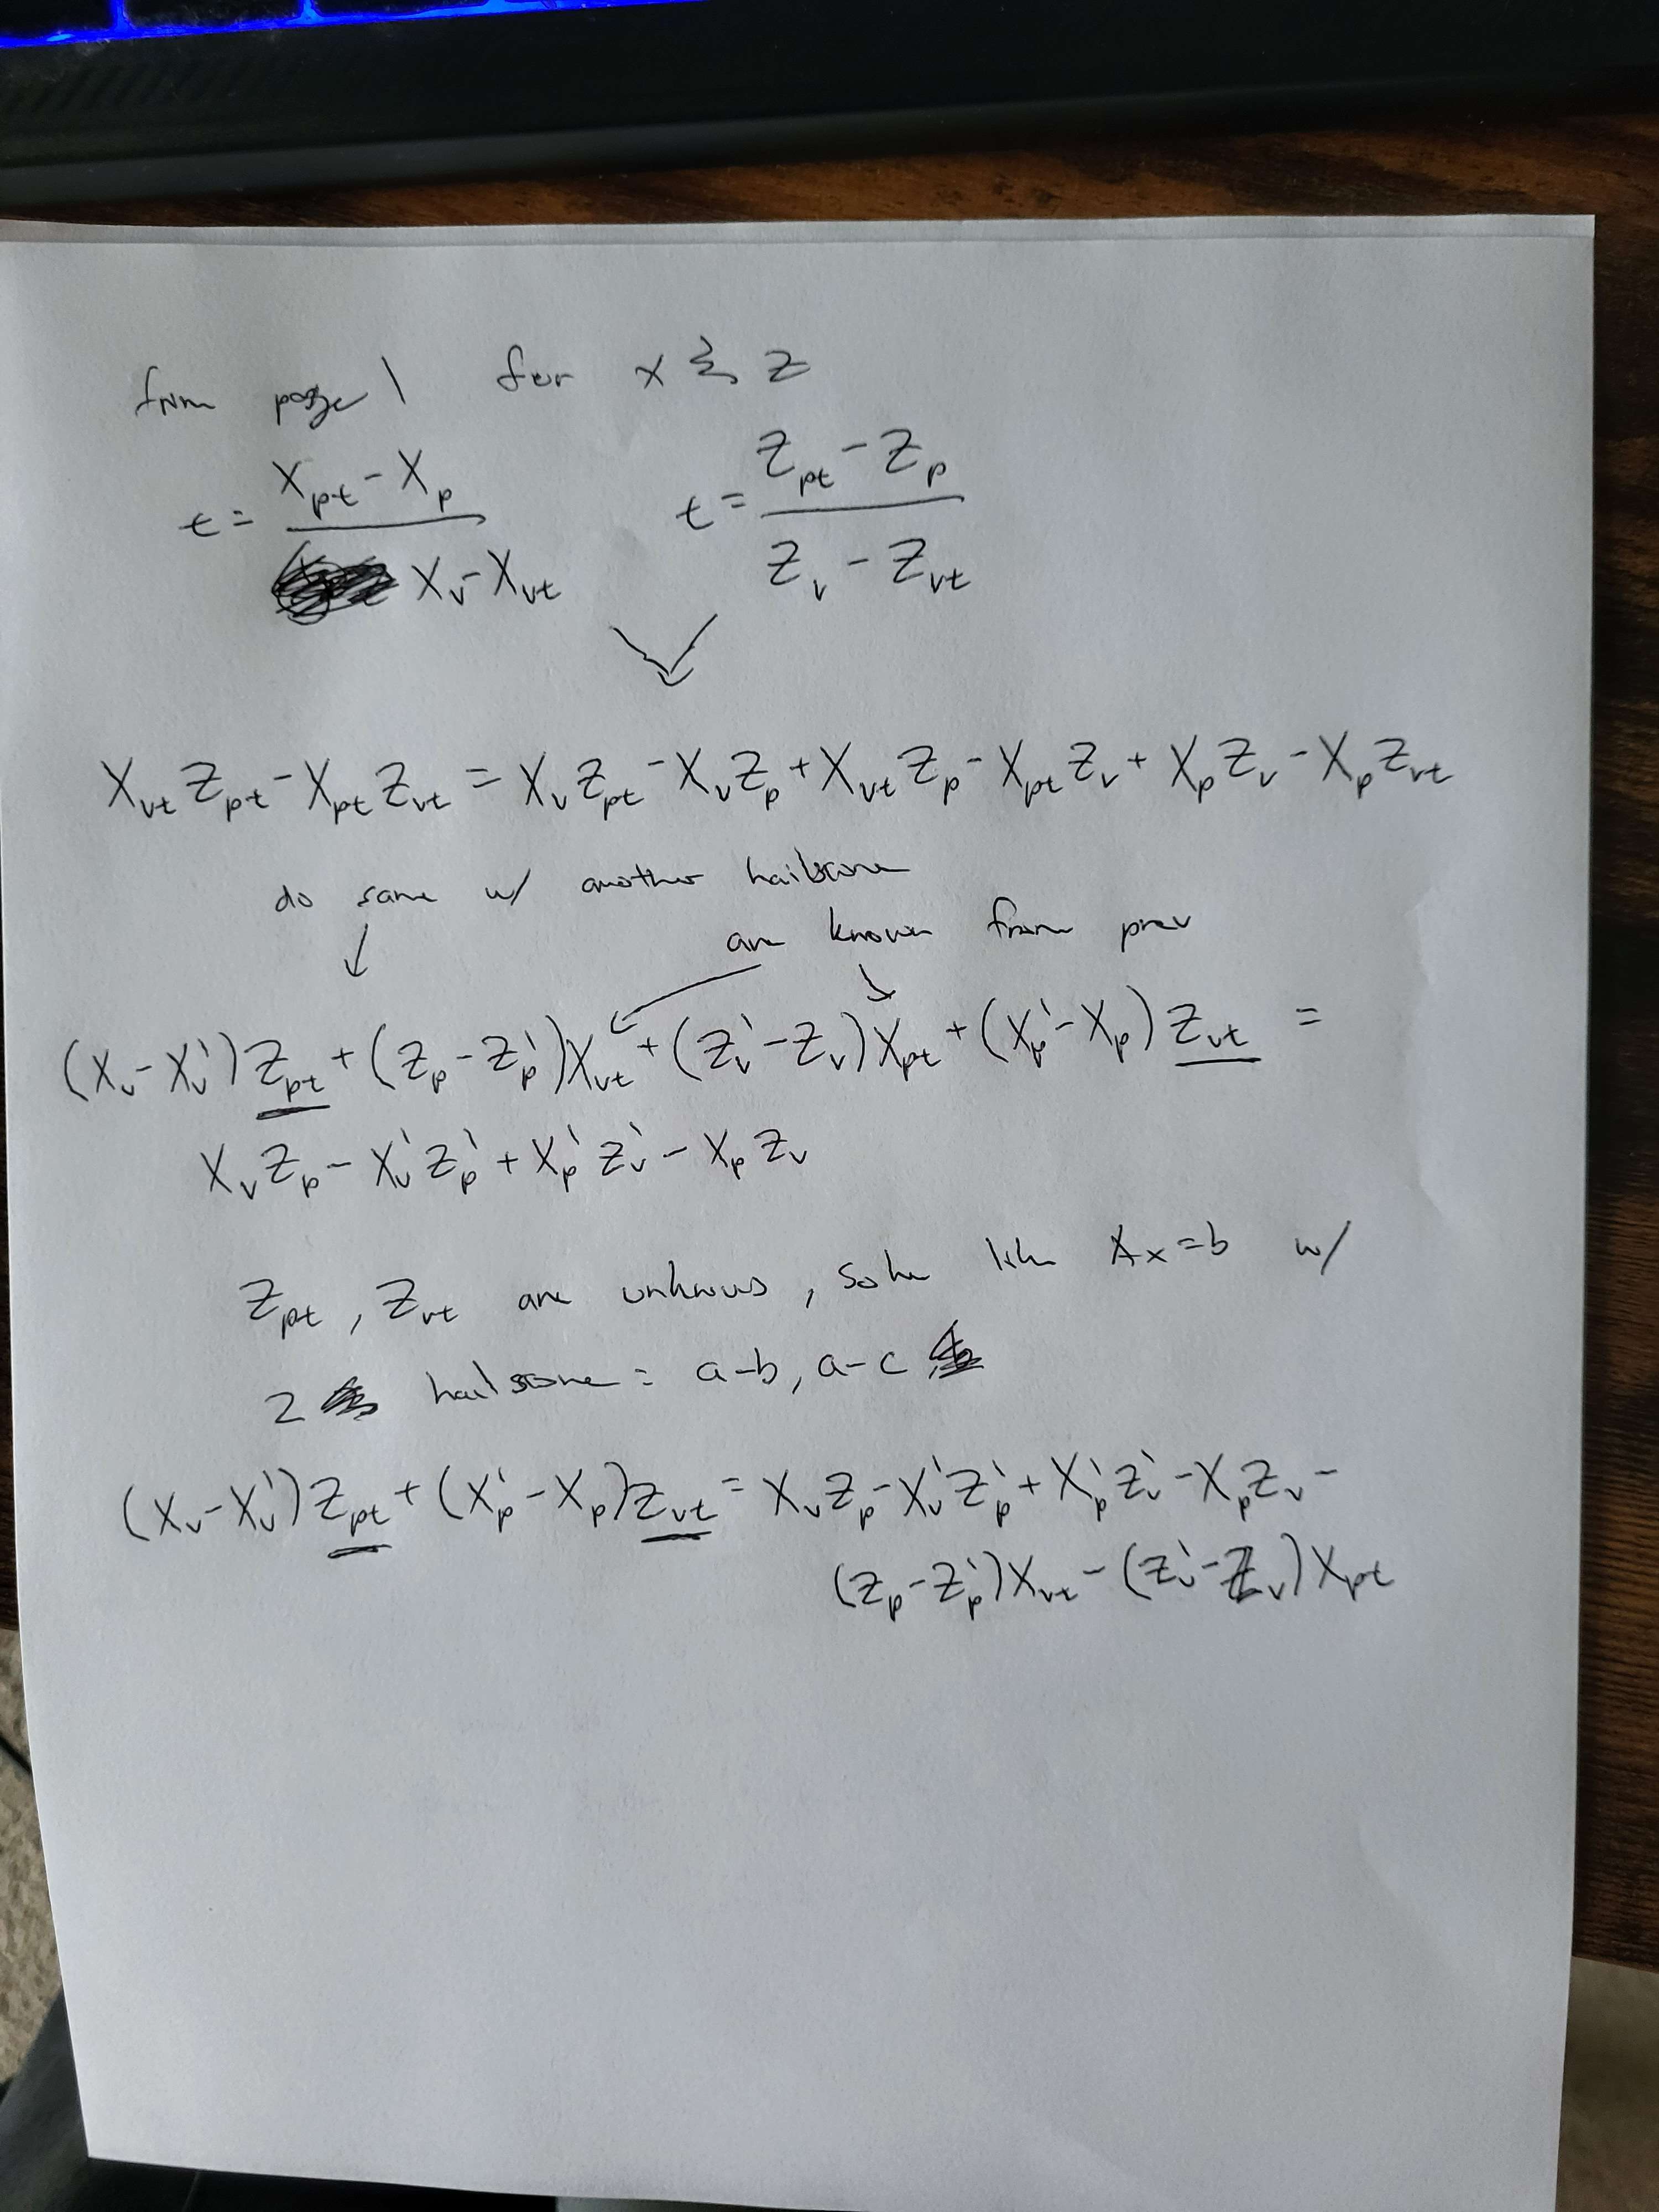 from page 1 for x & z
t = (X_pt - X_p) / (X_v - X_vt) t = (Z_pt - Z_p) / (Z_v - Z_vt)
X_vt Z_pt - X_pt Z_vt = X_v Z_pt - X_v Z_p + X_vt Z_p - X_pt Z_v + X_p Z_v - X_p Z_vt
do same w/ another hailstone
are known from prev
(X_v - X'_v) Z_pt + (Z_p - Z'_p) X_vt + (Z'_v - Z_v) X_pt + (X'_p - X_p) Z_vt =
X_v Z_p - X'_v Z'_p + X'_p Z'_v - X_p Z_v
Z_pt, Z_vt are unknowns, solve like Ax=b w/
2 hailstone: a-b, a-c
(X_v - X'_v) Z_pt + (X'_p - X_p) Z_vt = X_v Z_p - X'_v Z'_p + X'_p Z'_v - X_p Z_v -
(Z_p - Z'_p) X_vt - (Z'_v - Z_v) X_pt